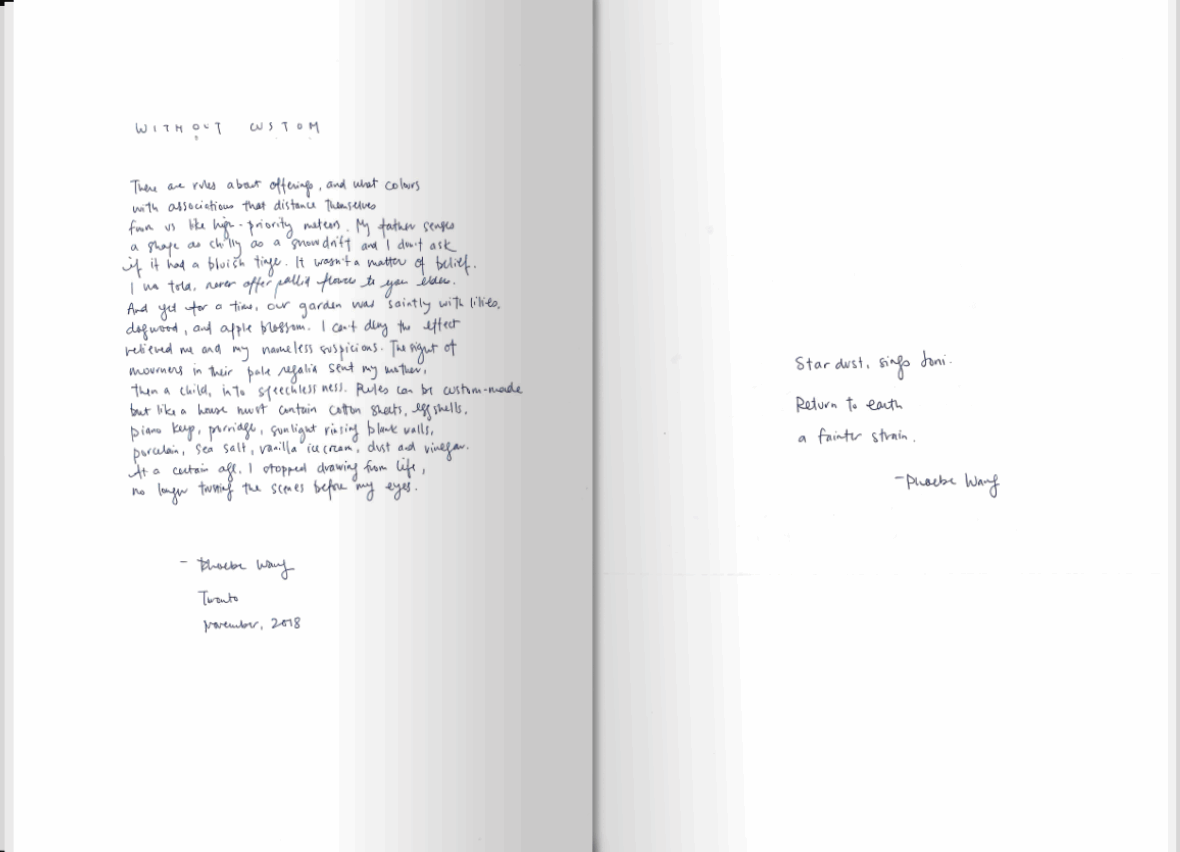 WITHOUT CUSTOM
There are rules about offerings, and what colours
with associations that distance themselves
from us like high-priority meteors. My father senses
a shape as chilly as a snowdrift and I don't ask
if it had a bluish tinge. It wasn't a matter of belief.
I was told, never offer pallid flowers to your elders.
And yet for a time, our garden was saintly with lilies,
dogwood, and apple blossom. I can't deny the effect
relieved me and my nameless suspicions. The sight of
mourners in their pale regalia sent my mother,
then a child, into speechlessness. Rules can be custom-made
but like a house must contain cotton sheets, eggshells,
piano keys, porridge, sunlight rinsing blank walls,
porcelain, sea salt, vanilla ice cream, dust and vinegar.
At a certain age, I stopped drawing from life,
no longer turning the scenes before my eyes.
- Phoebe Wang
Toronto
November, 2018
Star dust, sings Joni.
Return to earth
a fainter strain.
- Phoebe Wang